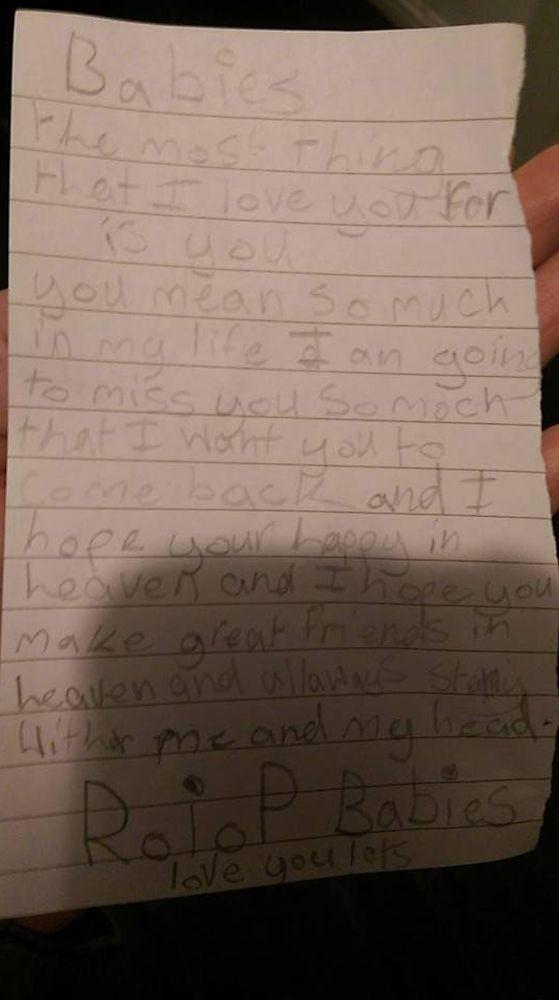 Babies
the most thing
that I love you For
is you
you mean so much
in my life I an going
to miss you so moch
that I want you to
come back and I
hope your happy in
heaven and I hope you
make great friends in
heaven and allaways
me and my head.
RoIoP Babies
love you lots